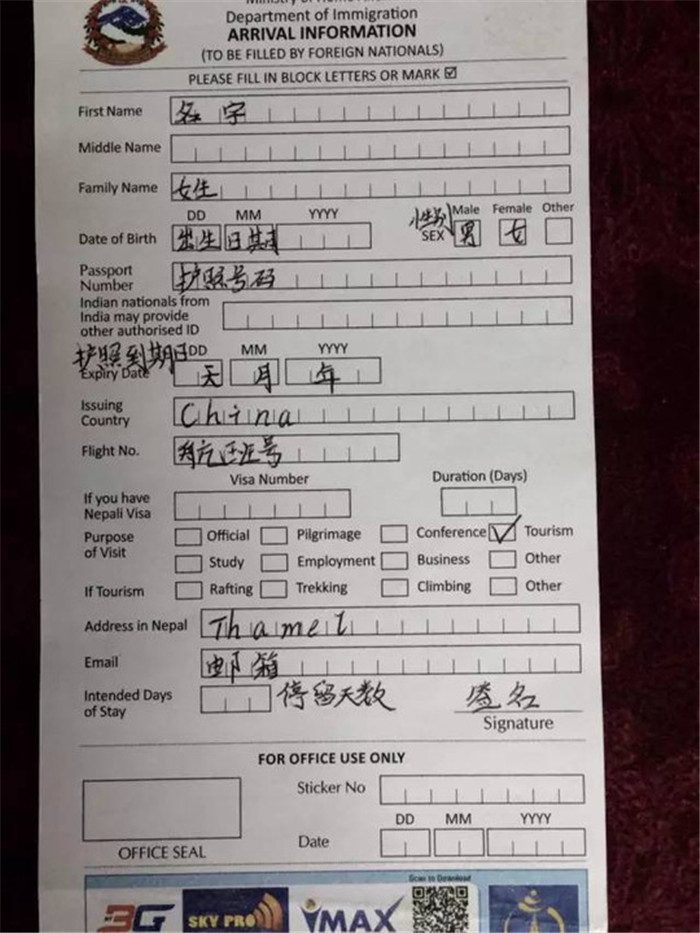 Department of Immigration
ARRIVAL INFORMATION
(TO BE FILLED BY FOREIGN NATIONALS)
PLEASE FILL IN BLOCK LETTERS OR MARK ☑
First Name 名字
Middle Name
Family Name 女生
DD MM YYYY 性别 Male Female Other
Date of Birth 出生日期 SEX 男 女
Passport Number 护照号码
Indian nationals from
India may provide
other authorised ID
护照到期日 DD MM YYYY
Expiry Date 天 月 年
Issuing Country China
Flight No. 号
Visa Number Duration (Days)
If you have
Nepali Visa
Purpose of Visit
Official Pilgrimage Conference ✓ Tourism
Study Employment Business Other
If Tourism Rafting Trekking Climbing Other
Address in Nepal Thamel
Email 邮箱
Intended Days of Stay 停留天数 签名
Signature
FOR OFFICE USE ONLY
Sticker No
DD MM YYYY
OFFICE SEAL Date
Scan to Download
3G SKY PRO YMAX